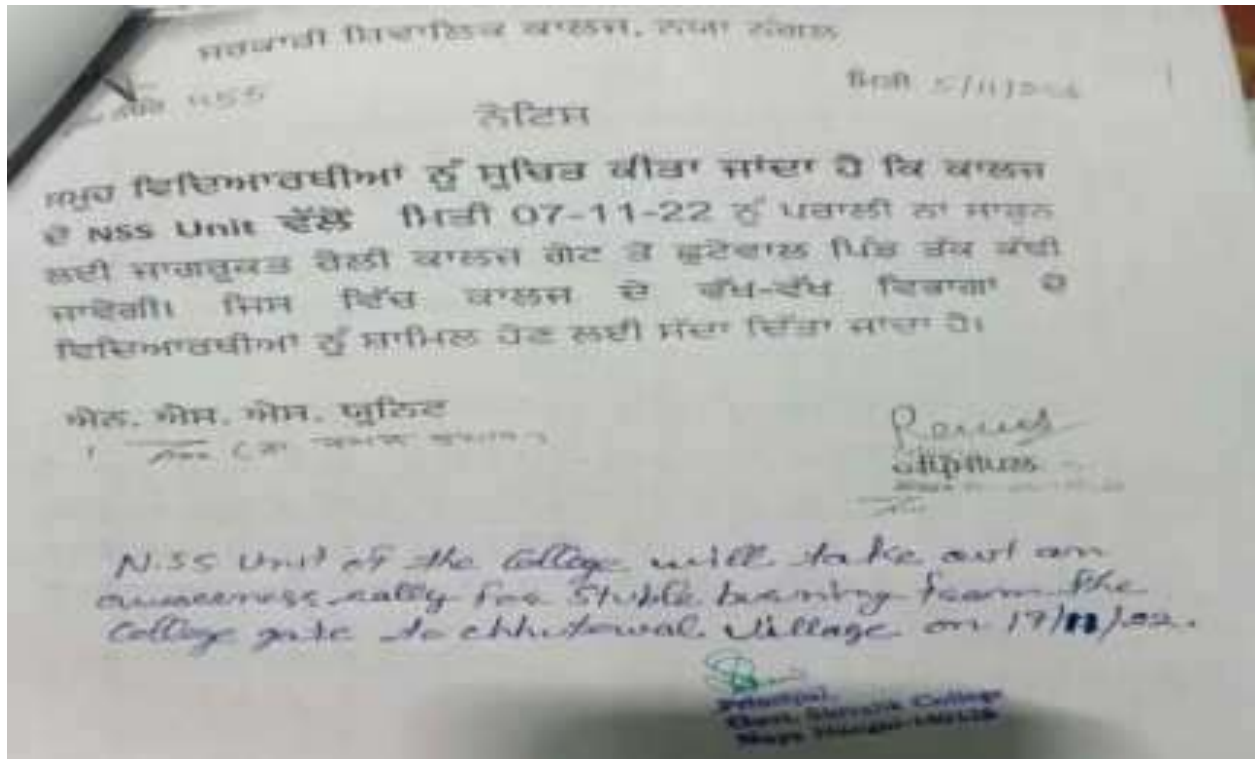 ਸਰਕਾਰੀ ਸ਼ਿਵਾਲਿਕ ਕਾਲਜ, ਨਯਾ ਨੰਗਲ
ਮਿਤੀ 5/11/
ਨੋਟਿਸ
ਸਮੂਹ ਵਿਦਿਆਰਥੀਆਂ ਨੂੰ ਸੂਚਿਤ ਕੀਤਾ ਜਾਂਦਾ ਹੈ ਕਿ ਕਾਲਜ
ਦੇ NSS Unit ਵੱਲੋਂ ਮਿਤੀ 07-11-22 ਨੂੰ ਪਰਾਲੀ ਨਾ ਸਾੜਨ
ਲਈ ਜਾਗਰੂਕਤ ਰੈਲੀ ਕਾਲਜ ਗੇਟ ਤੋਂ ਛੁਟੇਵਾਲ ਪਿੰਡ ਤੱਕ ਕੱਢੀ
ਜਾਵੇਗੀ। ਜਿਸ ਵਿੱਚ ਕਾਲਜ ਦੇ ਵੱਖ-ਵੱਖ ਵਿਭਾਗਾਂ ਦੇ
ਵਿਦਿਆਰਥੀਆਂ ਨੂੰ ਸ਼ਾਮਿਲ ਹੋਣ ਲਈ ਸੱਦਾ ਦਿੱਤਾ ਜਾਂਦਾ ਹੈ।
ਐਨ. ਐਸ. ਐਸ. ਯੂਨਿਟ
ਪ੍ਰਿੰਸੀਪਲ
N.SS Unit of the College will take out an
awareness rally for Stuble burning from the
College gate to chhutewal Village on 17/11/22.
Principal,
Govt. Shivalik College
Naya Nangal-140126